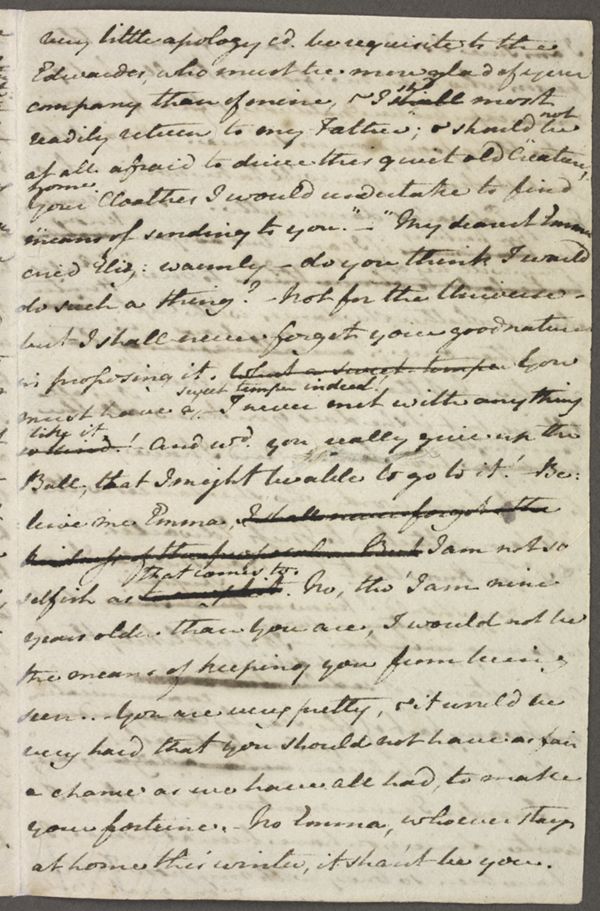 very little apology cd. be requisite to the
Edwardes, who must be more glad of your
company than of mine, & I shall shd. most
readily return to my Father; & should not be
at all afraid to drive this quiet old Creature,
home.
your Cloathes I would undertake to find
means of sending to you." - "My dearest Emma
cried Eliz: warmly - do you think I would
do such a thing? - Not for the Universe -
but I shall never forget your goodnature
in proposing it. What a sweet temper You
must have a sweet temper indeed! - I never met with anything
like it! - And wd. you really give up the
Ball, that I might be able to go to it! - Be:
leive me Emma, I shall never forget the
kindness of the proposal. But I am not so
selfish as that comes to. No, tho' I am nine
years older than you are, I would not be
the means of keeping you from being
seen. - You are very pretty, & it would be
very hard that you should not have as fair
a chance as we have all had, to make
your fortune. - No Emma, whoever stays
at home this winter, it shan't be you.